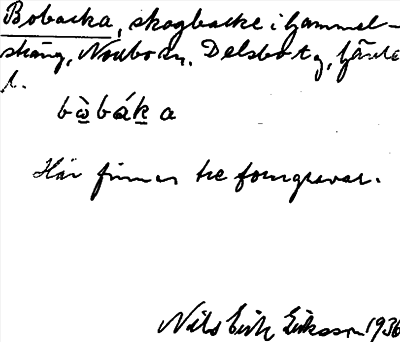 Bobacka, skogbacke i Gammel-
sträng, Norrbo sn, Delsbo tg, Gävle
l.
bòbáka
Här finnes tre forngravar.
Nils Erik Eriksson 1936